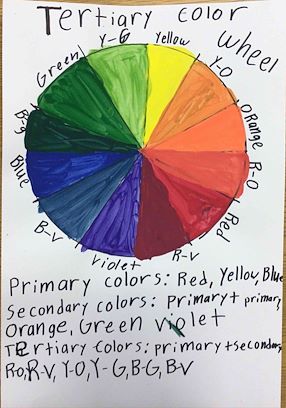 Tertiary color
wheel
Yellow
Y-O
Orange
R-O
Red
R-V
Violet
B-V
Blue
B-G
Green
Y-G
Primary colors: Red, Yellow, Blue
Secondary colors: Primary + primary,
Orange, Green violet
Tertiary Colors: primary + secondary
RO, R-V, Y-O, Y-G, B-G, B-V